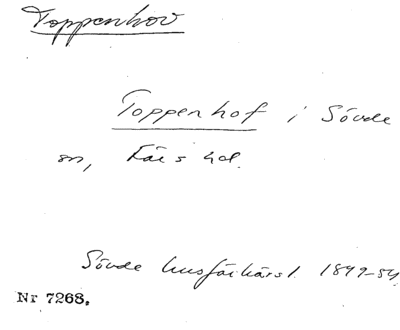 Toppenhov
Toppenhof i Sövde
sn, Färs hd.
Sövde husförhörsl. 1849-54.
Nr 7268.